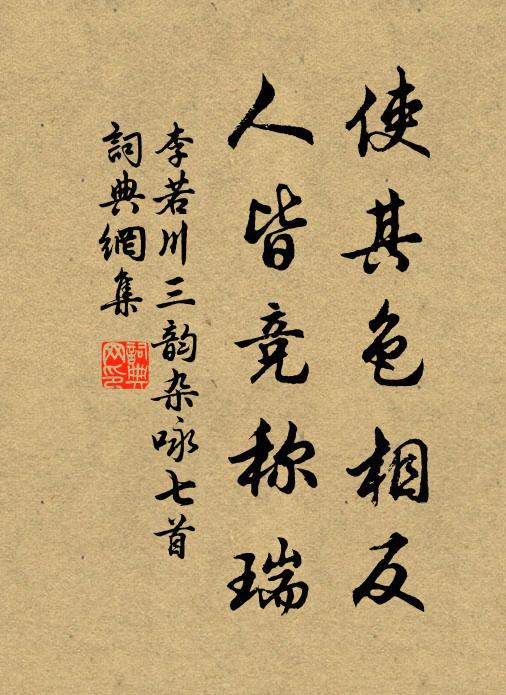 使其色相反
人皆竞称瑞
李若川三韵杂咏七首
詞典網集
詞典網印